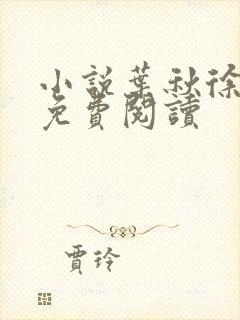 小說葉秋徐
免費閱讀
賈玲